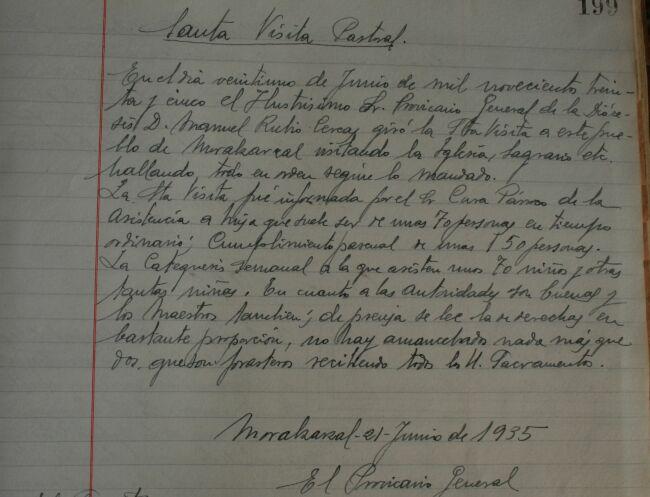 199
Santa Visita Pastoral.
En el día veintiuno de Junio de mil noveciento trein-
ta y cinco el Ilustrísimo Sr. Provicario General de la Dióce-
sis D. Manuel Rubio Cercas giró la Sta Visita a este pue-
blo de Moralzarzal visitando la Iglesia, Sagrario etc.
hallando, todo en orden según lo mandado.
La Sta Visita fué informada por el Sr Cura Párroco de la
Asistencia a misa que suele ser de unas 70 personas en tiempo
ordinario; Cumplimiento pascual de unas 150 personas.
La Catequesis semanal a la que asisten unos 70 niños y otras
tantas niñas. En cuanto a las autoridades son buenas y
los maestros también; de prensa se lee la de derechas en
bastante proporción, no hay amancebados nada más que
dos, que son forasteros recibiendo todos los Sacramentos.
Moralzarzal - 21 - Junio de 1935
El Provicario General